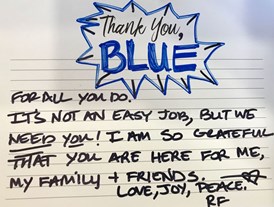 Thank You,
BLUE
FOR ALL YOU DO.
IT'S NOT AN EASY JOB, BUT WE
NEED YOU! I AM SO GRATEFUL
THAT YOU ARE HERE FOR ME,
MY FAMILY + FRIENDS.
LOVE, JOY, PEACE.
RF